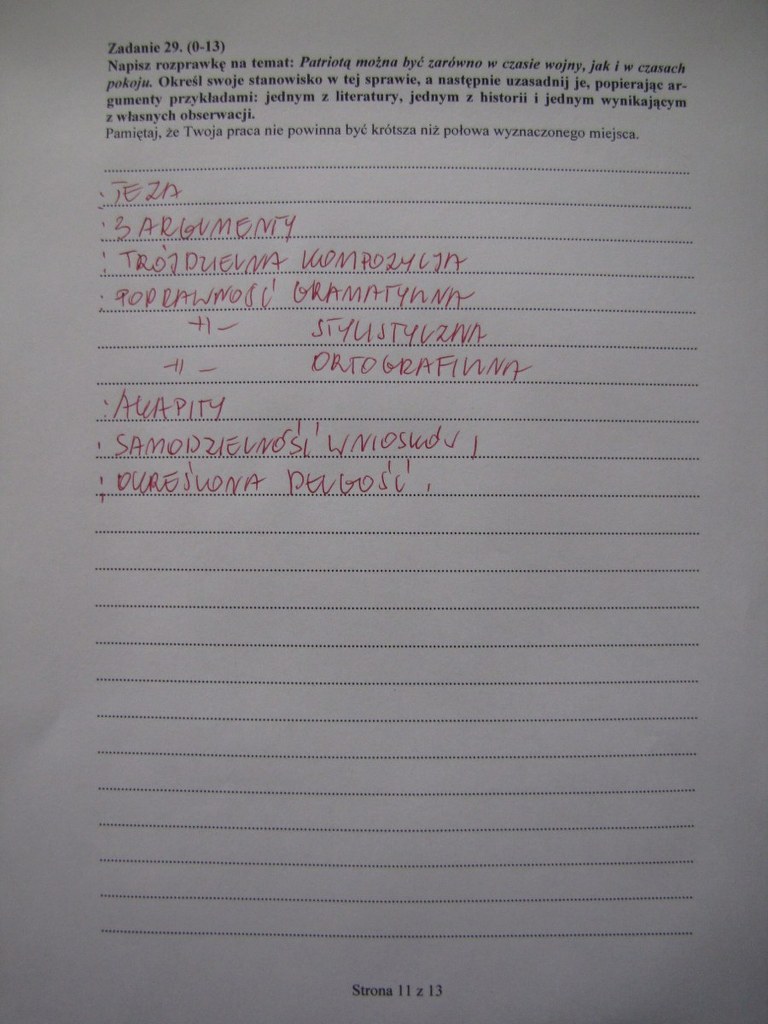 Zadanie 29. (0-13)
Napisz rozprawkę na temat: Patriotą można być zarówno w czasie wojny, jak i w czasach
pokoju. Określ swoje stanowisko w tej sprawie, a następnie uzasadnij je, popierając ar-
gumenty przykładami: jednym z literatury, jednym z historii i jednym wynikającym
z własnych obserwacji.
Pamiętaj, że Twoja praca nie powinna być krótsza niż połowa wyznaczonego miejsca.
· TEZA
· 3 ARGUMENTY
· TRÓJDZIELNA KOMPOZYCJA
· POPRAWNOŚĆ GRAMATYCZNA
-||- STYLISTYCZNA
-||- ORTOGRAFICZNA
· AKAPITY
· SAMODZIELNOŚĆ WNIOSKÓW
· OKREŚLONA DŁUGOŚĆ
Strona 11 z 13